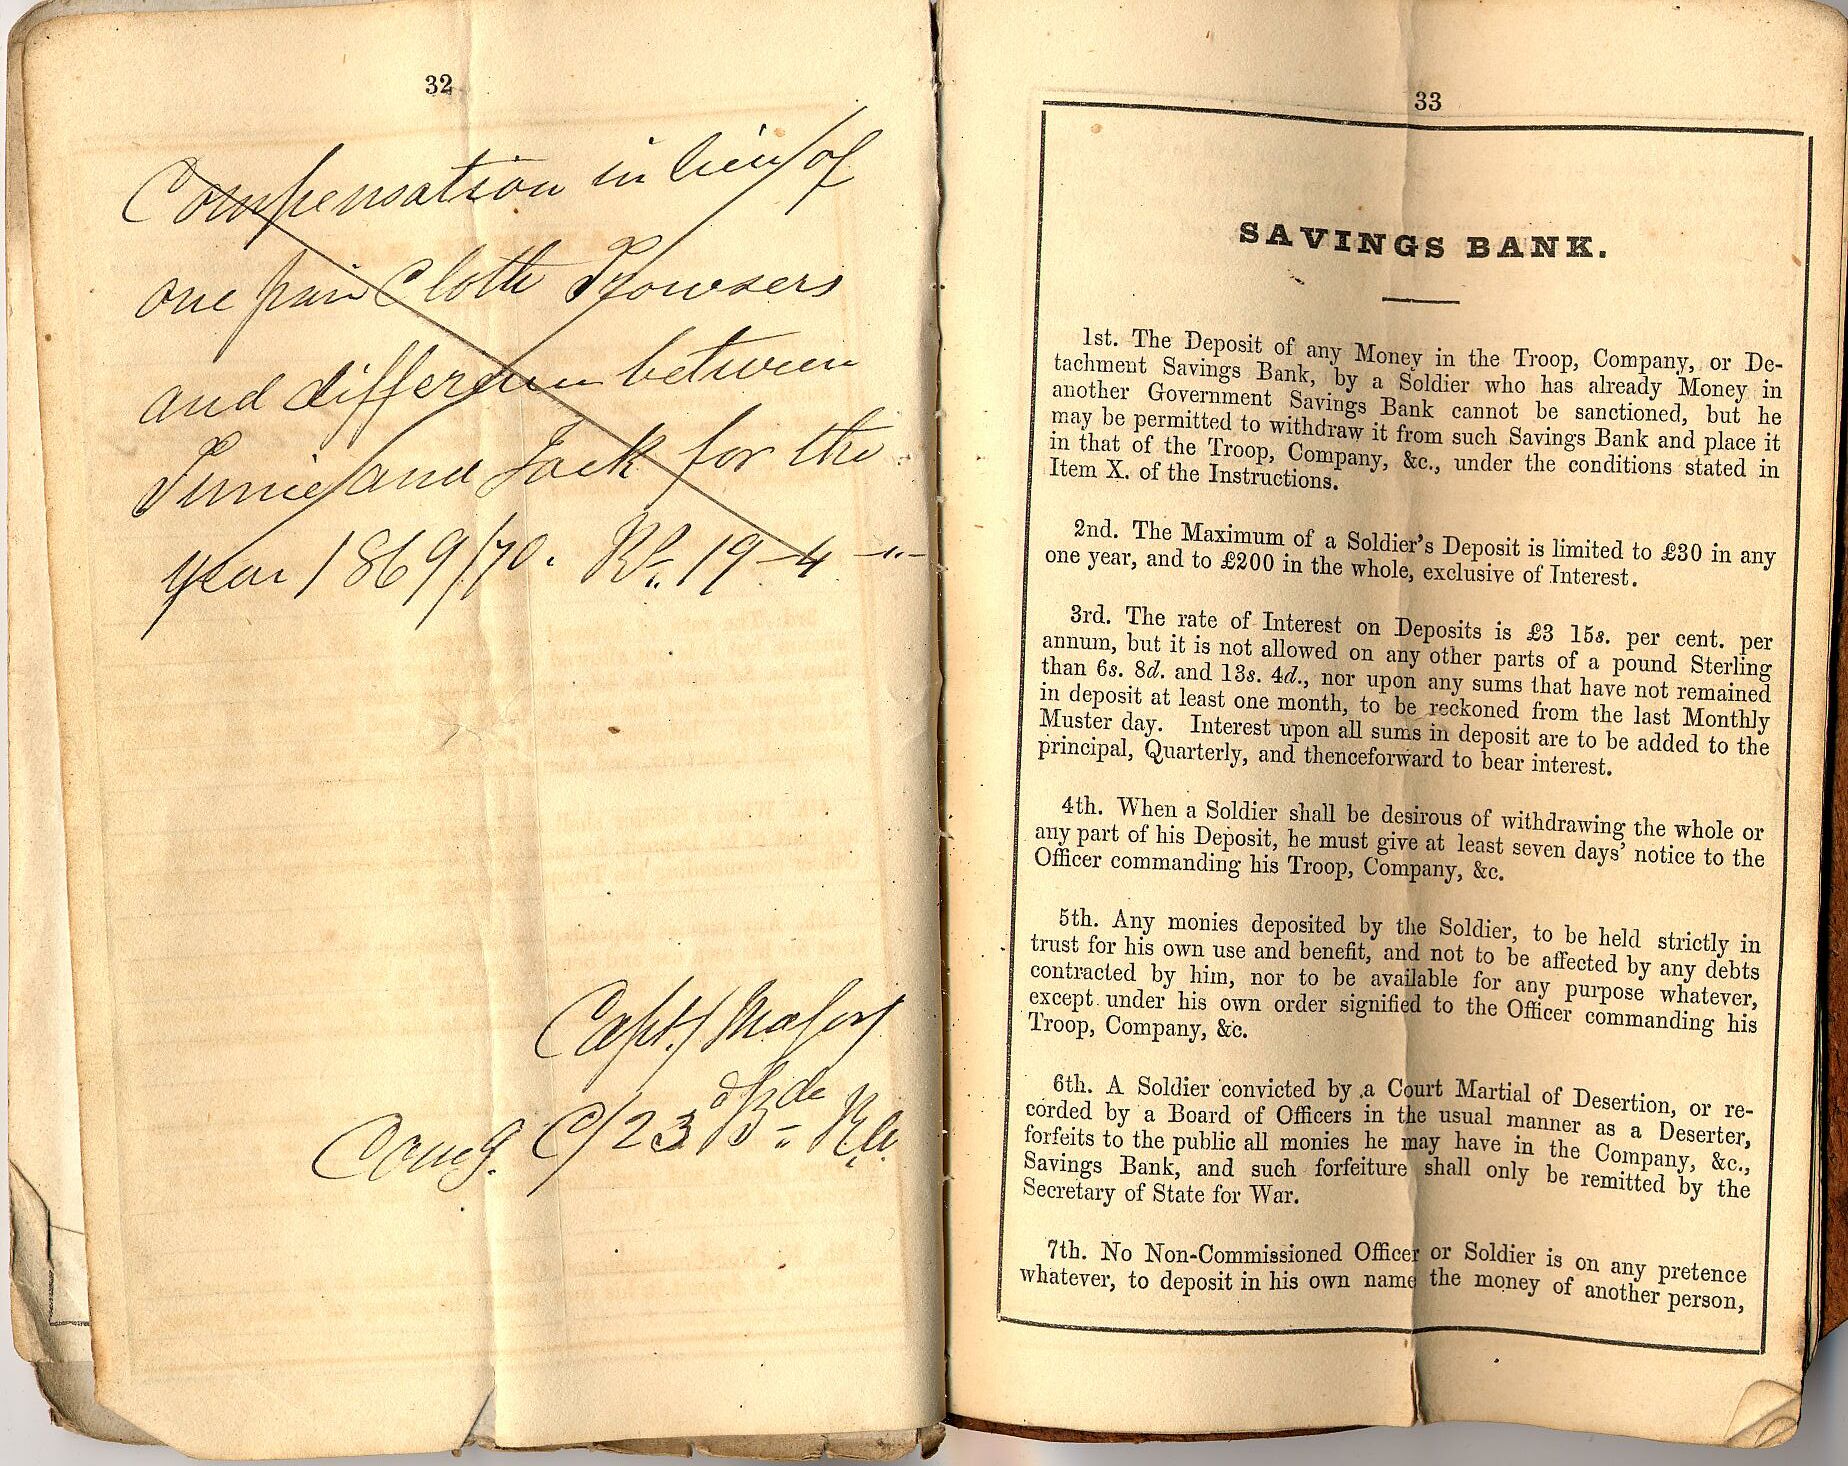 32
Compensation in lieu of
one pair Cloth Trowsers
and difference between
Tunic and Jack for the
year 1869/70. Rs. 19-4-"-
Capt. / Major
Comg. C/23d Bde R.A.
33
SAVINGS BANK.
1st. The Deposit of any Money in the Troop, Company, or De-
tachment Savings Bank, by a Soldier who has already Money in
another Government Savings Bank cannot be sanctioned, but he
may be permitted to withdraw it from such Savings Bank and place it
in that of the Troop, Company, &c., under the conditions stated in
Item X. of the Instructions.
2nd. The Maximum of a Soldier's Deposit is limited to £30 in any
one year, and to £200 in the whole, exclusive of Interest.
3rd. The rate of Interest on Deposits is £3 15s. per cent. per
annum, but it is not allowed on any other parts of a pound Sterling
than 6s. 8d. and 13s. 4d., nor upon any sums that have not remained
in deposit at least one month, to be reckoned from the last Monthly
Muster day. Interest upon all sums in deposit are to be added to the
principal, Quarterly, and thenceforward to bear interest.
4th. When a Soldier shall be desirous of withdrawing the whole or
any part of his Deposit, he must give at least seven days' notice to the
Officer commanding his Troop, Company, &c.
5th. Any monies deposited by the Soldier, to be held strictly in
trust for his own use and benefit, and not to be affected by any debts
contracted by him, nor to be available for any purpose whatever,
except under his own order signified to the Officer commanding his
Troop, Company, &c.
6th. A Soldier convicted by a Court Martial of Desertion, or re-
corded by a Board of Officers in the usual manner as a Deserter,
forfeits to the public all monies he may have in the Company, &c.,
Savings Bank, and such forfeiture shall only be remitted by the
Secretary of State for War.
7th. No Non-Commissioned Officer or Soldier is on any pretence
whatever, to deposit in his own name the money of another person,